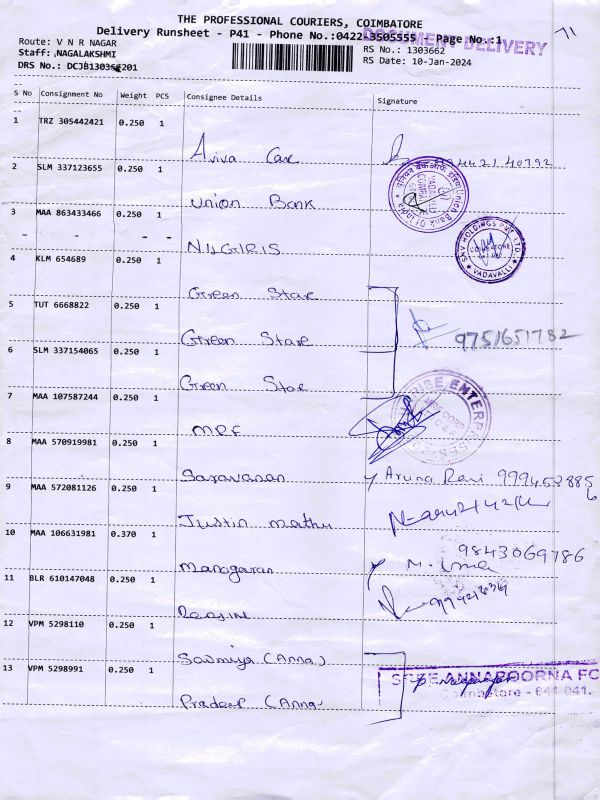 THE PROFESSIONAL COURIERS, COIMBATORE
Delivery Runsheet - P41 - Phone No.:0422-3505555 - Page No.:1
DOCUMENT DELIVERY
71
Route: V N R NAGAR
Staff: NAGALAKSHMI
DRS No.: DCJB130366201
RS No.: 1303662
RS Date: 10-Jan-2024
S No Consignment No Weight PCS Consignee Details Signature
1 TRZ 305442421 0.250 1 Aviva Care 9442140792
2 SLM 337123655 0.250 1 Union Bank
3 MAA 863433466 0.250 1 NILGIRIS
SKV HOLDINGS PVT. LTD.
COIMBATORE
★ VADAVALLI ★
4 KLM 654689 0.250 1 Green Star
5 TUT 6668822 0.250 1 Green Star 9751651782
6 SLM 337154065 0.250 1 Green Star
7 MAA 107587244 0.250 1 MRF
8 MAA 570919981 0.250 1 Saravanan Aruna Devi 9994538856
9 MAA 572081126 0.250 1 Justin Mathu
10 MAA 106631981 0.370 1 Manogaran M. Uma 9843069786
11 BLR 610147048 0.250 1
12 VPM 5298110 0.250 1 Sowmiya (Anna)
13 VPM 5298991 0.250 1 Pradeep (Anna)
SREE ANNAPOORNA FO
Coimbatore - 641 041.